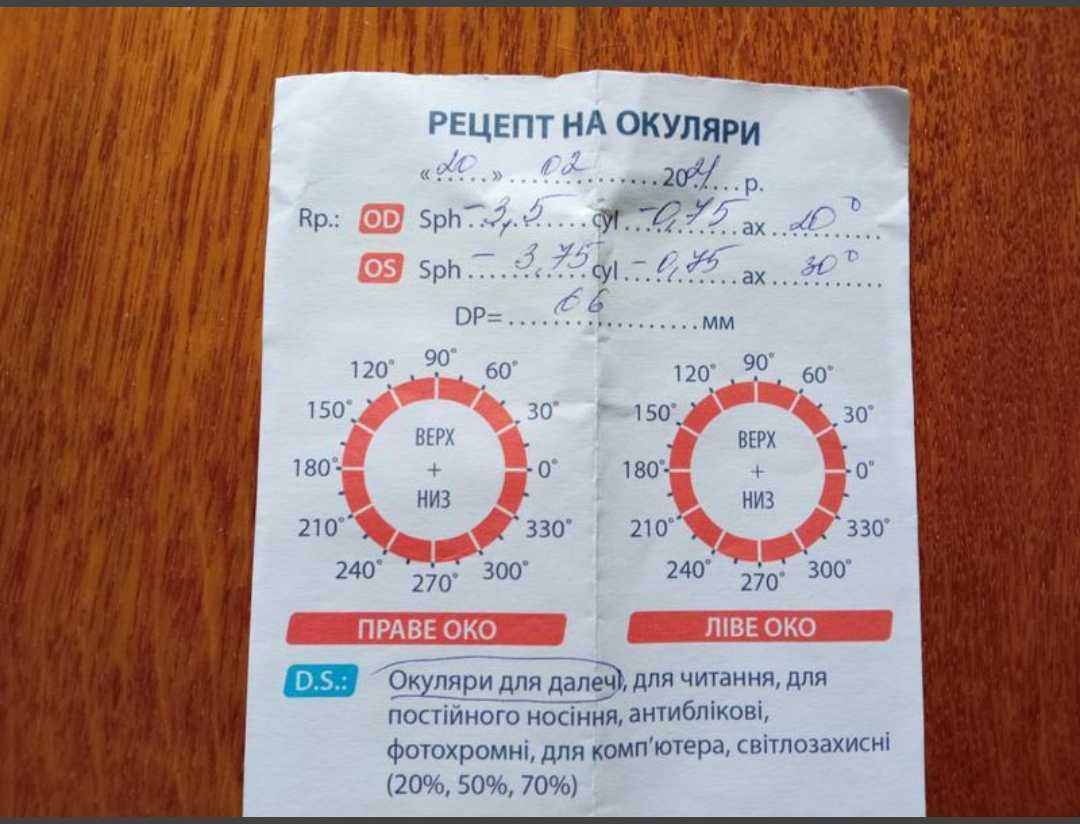 РЕЦЕПТ НА ОКУЛЯРИ
«20» 02 2021 р.
Rp.: OD Sph -3,5 cyl -0,75 ax 20°
OS Sph - 3,75 cyl -0,75 ax 30°
DP= 66 мм
90° 90°
120° 60° 120° 60°
150° 30° 150° 30°
ВЕРХ ВЕРХ
180° + 0° 180° + 0°
НИЗ НИЗ
210° 330° 210° 330°
240° 300° 240° 300°
270° 270°
ПРАВЕ ОКО ЛІВЕ ОКО
D.S.: Окуляри для далечі, для читання, для
постійного носіння, антиблікові,
фотохромні, для комп'ютера, світлозахисні
(20%, 50%, 70%)